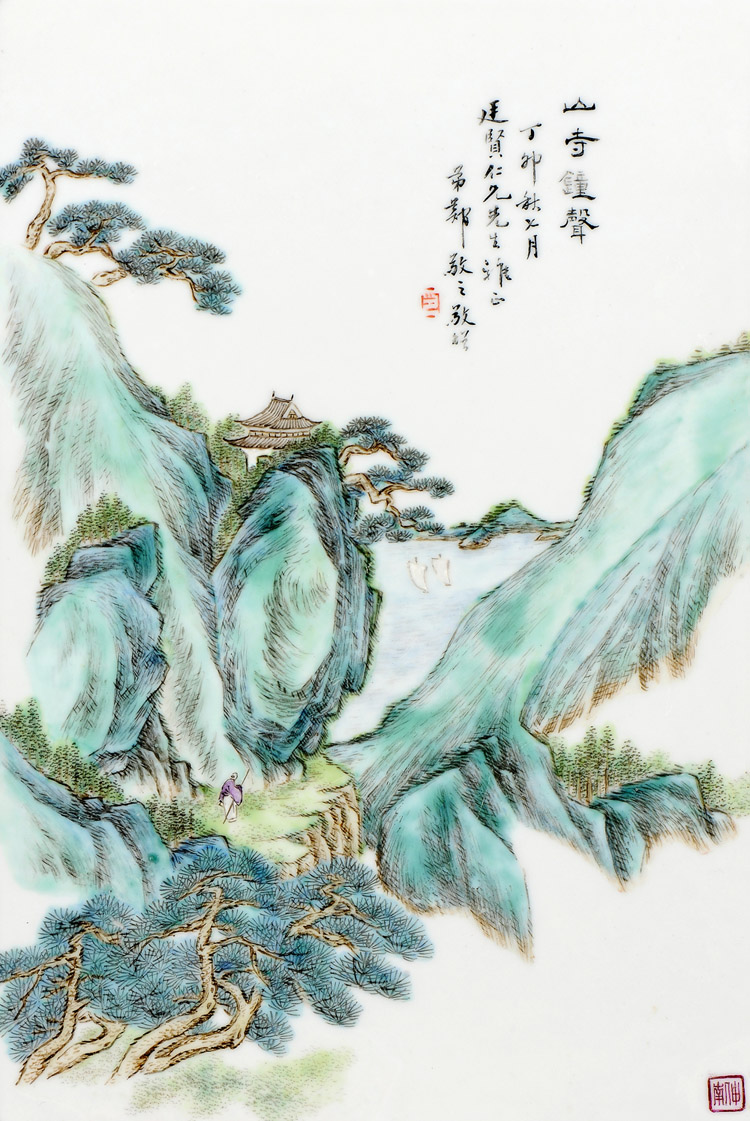 山寺鐘聲
丁卯秋七月
廷賢仁兄先生雅正
弟鄭敬之敬繪